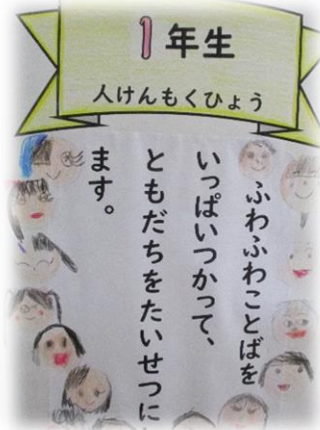 1年生
人けんもくひょう
ふわふわことばを
いっぱいつかって、
ともだちをたいせつに
ます。